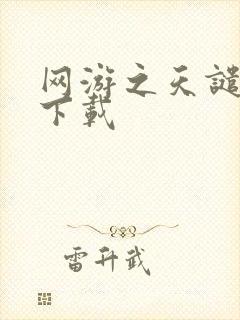 网游之天谴
下载
雷升武